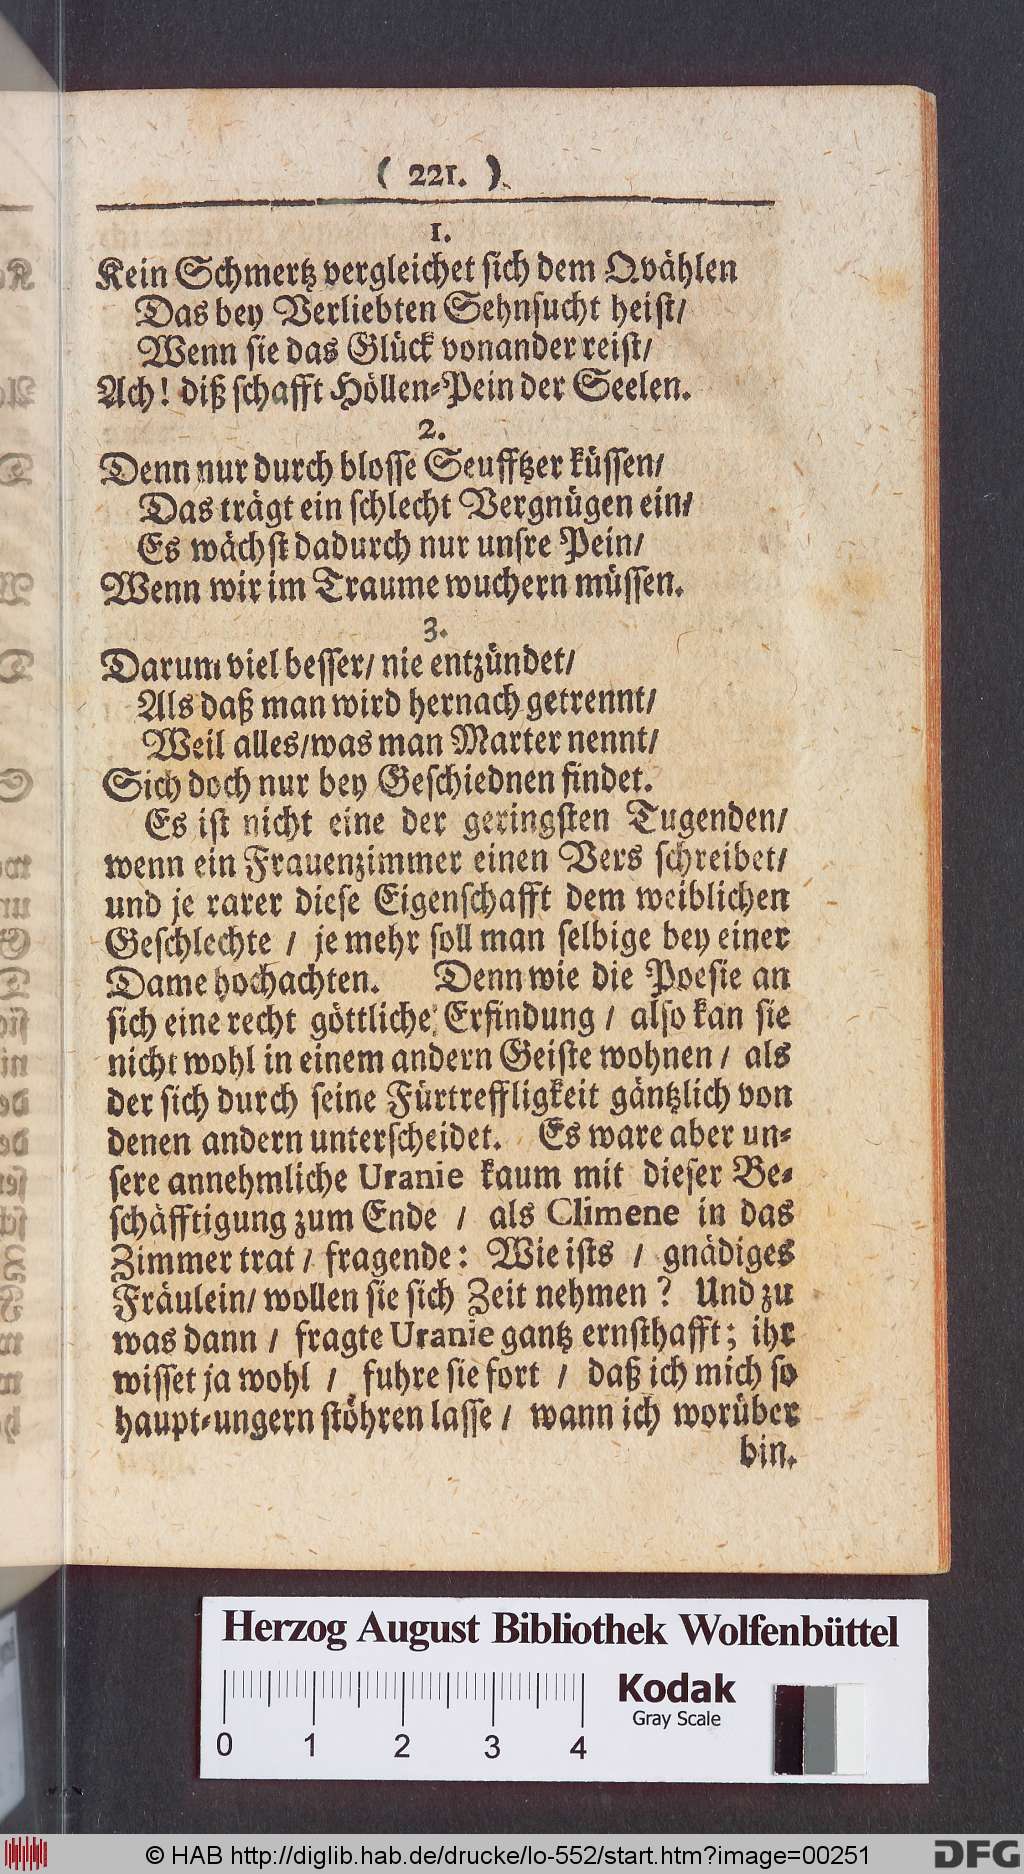 ( 221. )
1.
Kein Schmertz vergleichet sich dem Qvählen
Das bey Verliebten Sehnsucht heist/
Wenn sie das Glück vonander reist/
Ach! diß schafft Höllen-Pein der Seelen.
2.
Denn nur durch blosse Seufftzer küssen/
Das trägt ein schlecht Vergnügen ein/
Es wächst dadurch nur unsre Pein/
Wenn wir im Traume wuchern müssen.
3.
Darum viel besser/ nie entzündet/
Als daß man wird hernach getrennt/
Weil alles/was man Marter nennt/
Sich doch nur bey Geschiednen findet.
Es ist nicht eine der geringsten Tugenden/
wenn ein Frauenzimmer einen Vers schreibet/
und je rarer diese Eigenschafft dem weiblichen
Geschlechte / je mehr soll man selbige bey einer
Dame hochachten. Denn wie die Poesie an
sich eine recht göttliche Erfindung / also kan sie
nicht wohl in einem andern Geiste wohnen / als
der sich durch seine Fürtreffligkeit gäntzlich von
denen andern unterscheidet. Es ware aber un-
sere annehmliche Uranie kaum mit dieser Be-
schäfftigung zum Ende / als Climene in das
Zimmer trat / fragende: Wie ists / gnädiges
Fräulein/ wollen sie sich Zeit nehmen? Und zu
was dann / fragte Uranie gantz ernsthafft; ihr
wisset ja wohl / fuhre sie fort / daß ich mich so
haupt-ungern stöhren lasse / wann ich worüber
bin.
Herzog August Bibliothek Wolfenbüttel
Kodak
Gray Scale
0 1 2 3 4
© HAB http://diglib.hab.de/drucke/lo-552/start.htm?image=00251
DFG